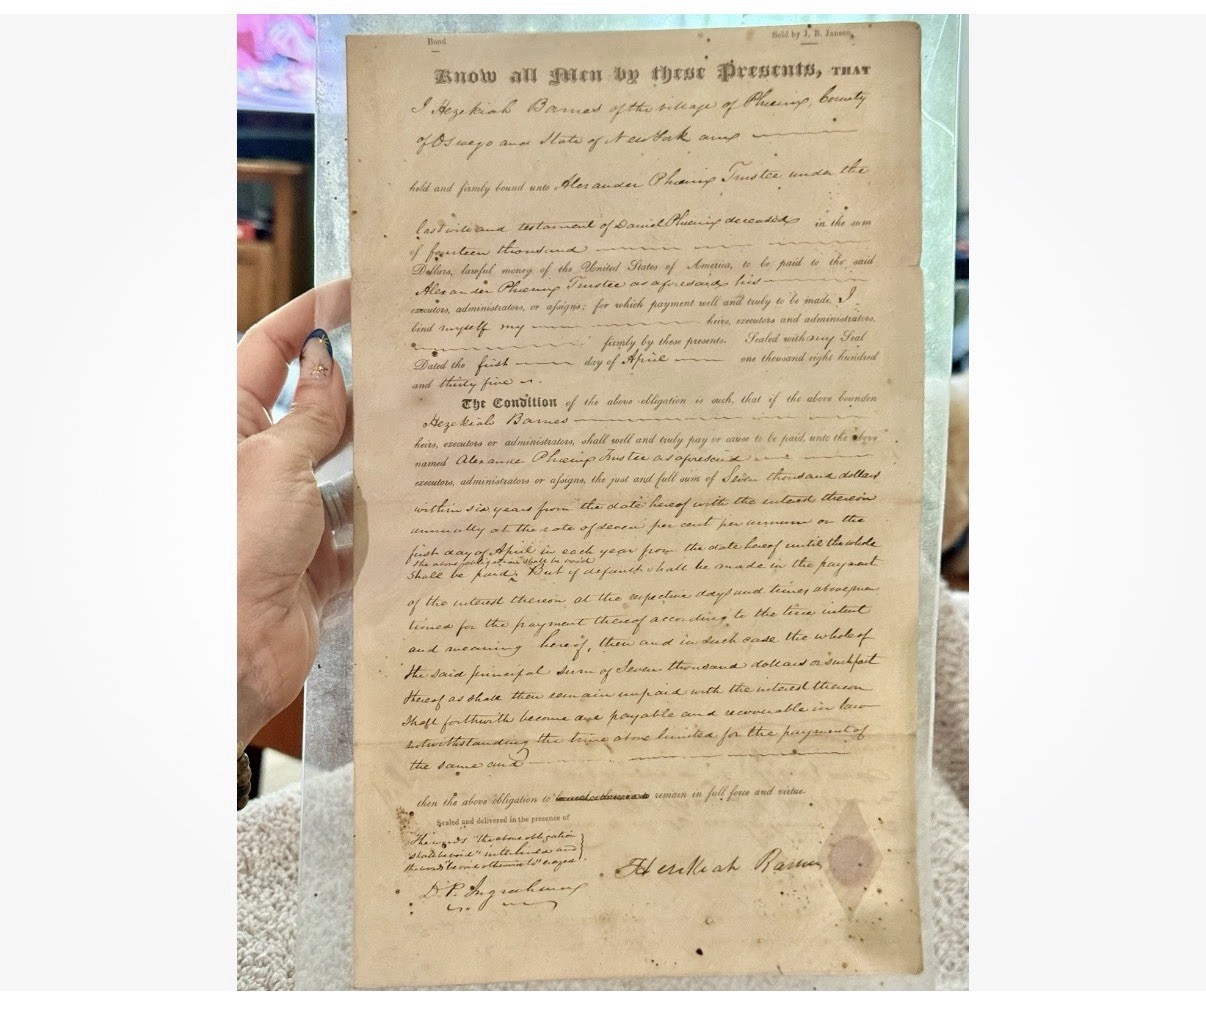 Bond
Sold by J. B. Jansen,
Know all Men by these Presents, THAT
I Hezekiah Barnes of the village of Phœnix, County
of Oswego and State of New York am
held and firmly bound unto Alexander Phœnix Trustee under the
last will and testament of Daniel Phœnix deceased in the sum
of fourteen thousand
Dollars, lawful money of the United States of America, to be paid to the said
Alexander Phœnix Trustee as aforesaid, his
executors, administrators, or assigns; for which payment well and truly to be made, I
bind myself my heirs, executors and administrators,
firmly by these presents. Sealed with my Seal
Dated the first day of April one thousand eight hundred
and thirty five
The Condition of the above obligation is such, that if the above bounden
Hezekiah Barnes
heirs, executors or administrators, shall well and truly pay or cause to be paid, unto the above
named Alexander Phœnix Trustee as aforesaid
executors, administrators or assigns, the just and full sum of Seven thousand dollars
within six years from the date hereof with the interest thereon
annually at the rate of seven per cent per annum on the
first day of April in each year from the date hereof until the whole
the above obligation shall be void
shall be paid; But if default shall be made in the payment
of the interest thereon at the respective days and times abovemen
tioned for the payment thereof according to the true intent
and meaning hereof, then and in such case the whole of
the said principal sum of Seven thousand dollars or such part
thereof as shall then remain unpaid with the interest thereon
shall forthwith become due payable and recoverable in law
notwithstanding the time above limited for the payment of
the same and
then the above obligation to remain in full force and virtue.
Sealed and delivered in the presence of
The words "the above obligation
shall be void" interlined and
the words "be void otherwise to" erased
D. P. Ingraham
Hezekiah Barnes